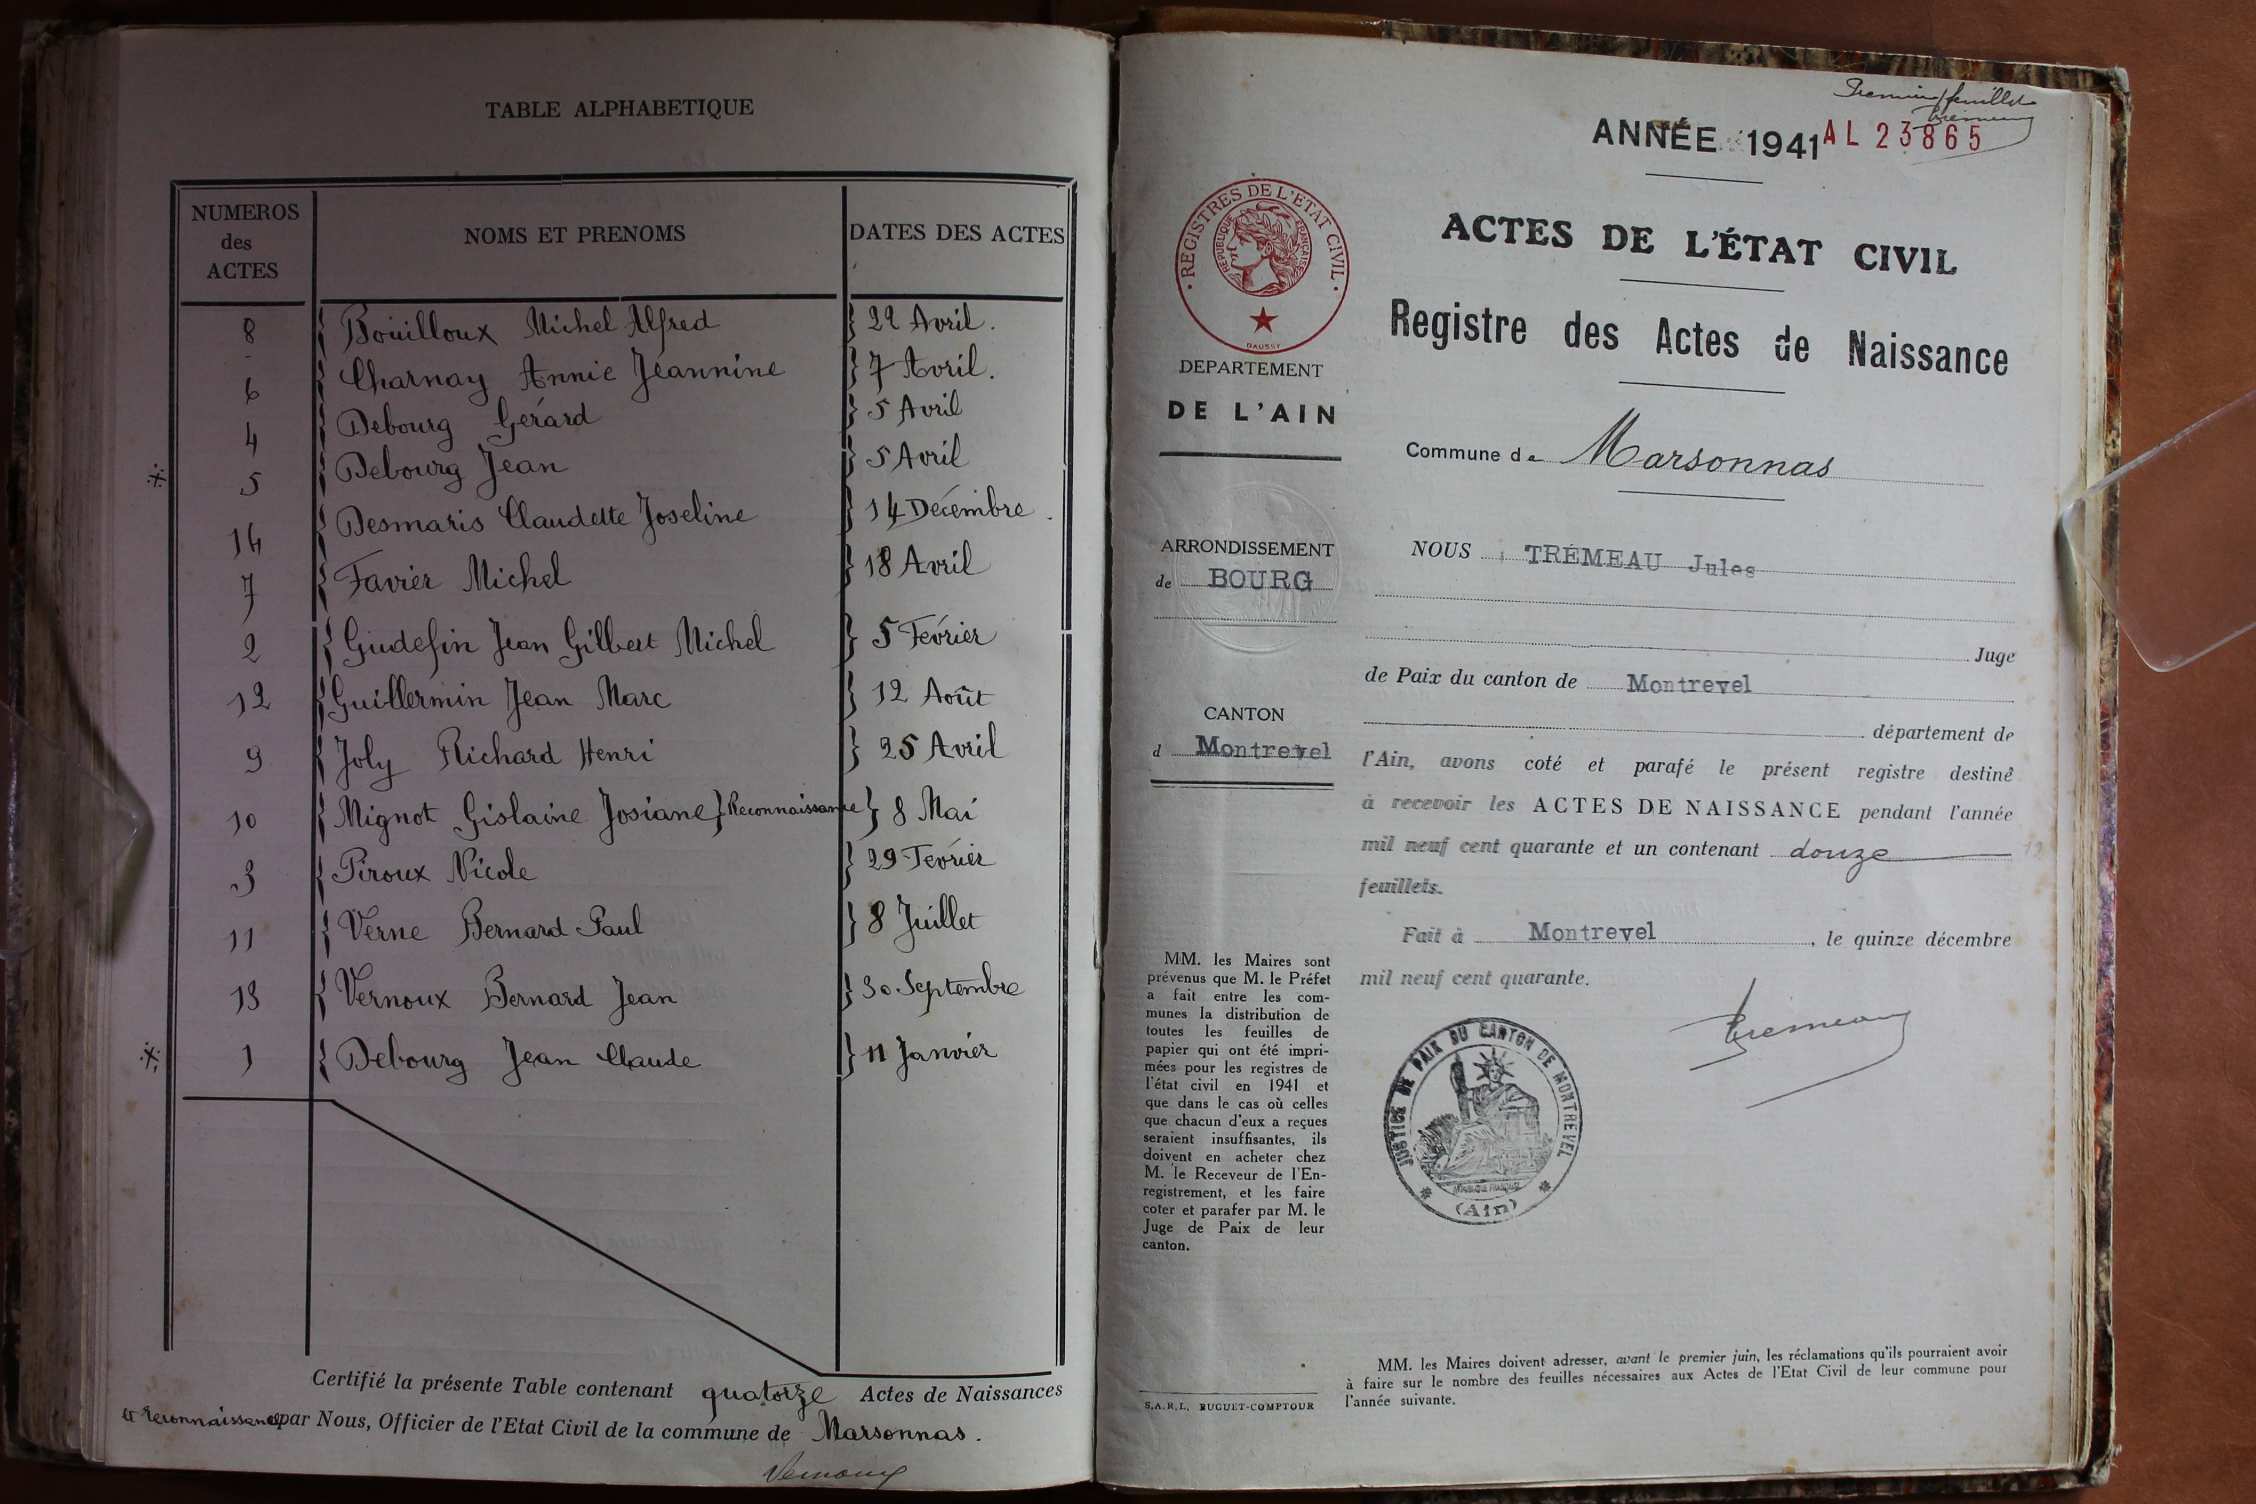 TABLE ALPHABETIQUE
NUMEROS des ACTES NOMS ET PRENOMS DATES DES ACTES
8 Bouilloux Michel Alfred 22 Avril.
6 Charnay Annie Jeannine 7 Avril.
4 Debourg Gérard 5 Avril
5 Debourg Jean 5 Avril
14 Desmaris Claudette Joseline 14 Décembre.
7 Favier Michel 18 Avril
2 Gudefin Jean Gilbert Michel 5 Février
12 Guillermin Jean Marc 12 Août
9 Joly Richard Henri 25 Avril
10 Mignot Gislaine Josiane } Reconnaissance } 8 Mai
3 Piroux Nicole 29 Février
11 Verne Bernard Paul 8 Juillet
13 Vernoux Bernard Jean 30 Septembre
1 Debourg Jean Claude 11 Janvier
Certifié la présente Table contenant quatorze Actes de Naissances
et reconnaissance par Nous, Officier de l'Etat Civil de la commune de Marsonnas.
Premier feuillet
ANNÉE 1941 AL 23865
ACTES DE L'ÉTAT CIVIL
Registre des Actes de Naissance
Commune de Marsonnas
· REGISTRES DE L'ETAT CIVIL ·
REPUBLIQUE FRANÇAISE
DAUSSY
DEPARTEMENT
DE L'AIN
ARRONDISSEMENT
de BOURG
CANTON
d Montrevel
NOUS, TRÉMEAU Jules
Juge
de Paix du canton de Montrevel
département de
l'Ain, avons coté et parafé le présent registre destiné
à recevoir les ACTES DE NAISSANCE pendant l'année
mil neuf cent quarante et un contenant douze 12
feuillets.
Fait à Montrevel, le quinze décembre
mil neuf cent quarante.
Tremeau
MM. les Maires sont
prévenus que M. le Préfet
a fait entre les com-
munes la distribution de
toutes les feuilles de
papier qui ont été impri-
mées pour les registres de
l'état civil en 1941 et
que dans le cas où celles
que chacun d'eux a reçues
seraient insuffisantes, ils
doivent en acheter chez
M. le Receveur de l'En-
registrement, et les faire
coter et parafer par M. le
Juge de Paix de leur
canton.
JUSTICE DE PAIX DU CANTON DE MONTREVEL
(Ain)
S.A.R.L. BUGUET-COMPTOUR
MM. les Maires doivent adresser, avant le premier juin, les réclamations qu'ils pourraient avoir
à faire sur le nombre des feuilles nécessaires aux Actes de l'Etat Civil de leur commune pour
l'année suivante.